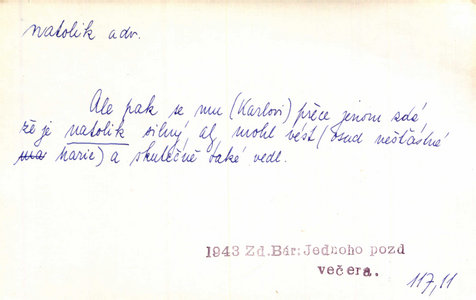 natolik adv.
Ale pak se mu (Karlovi) přece jenom zdá
že je natolik silný, aby mohl vést (osud nešťastné
Marie) a skutečně také vedl.
1943 Zd.Bár: Jednoho pozd
večera.
117,11